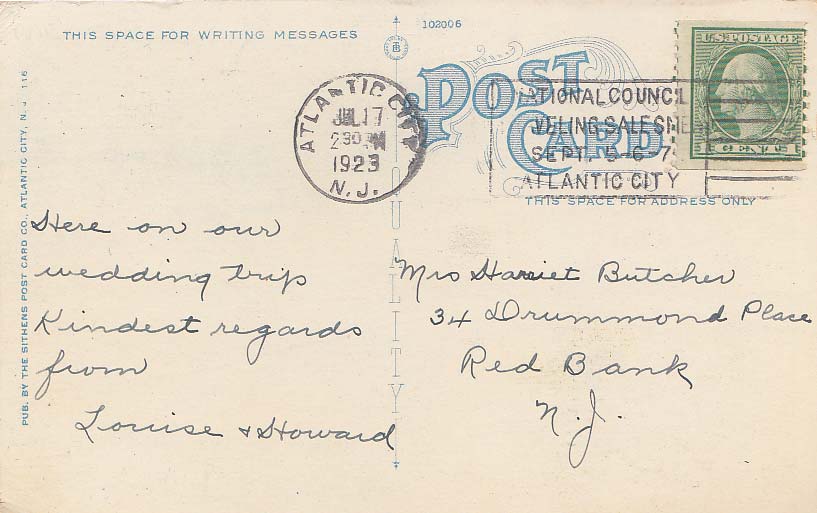 THIS SPACE FOR WRITING MESSAGES
102006
POST CARD
ATLANTIC CITY
JUL 17
2 30 PM
1923
N. J.
NATIONAL COUNCIL
VELING SALESME
SEPT. 5-6-7,
ATLANTIC CITY
U.S. POSTAGE
THIS SPACE FOR ADDRESS ONLY
QUALITY
PUB. BY THE SITHENS POST CARD CO., ATLANTIC CITY, N. J. 116
Here on our
wedding trip
Kindest regards
from
Louise & Howard
Mrs Harriet Butcher
34 Drummond Place
Red Bank
N. J.